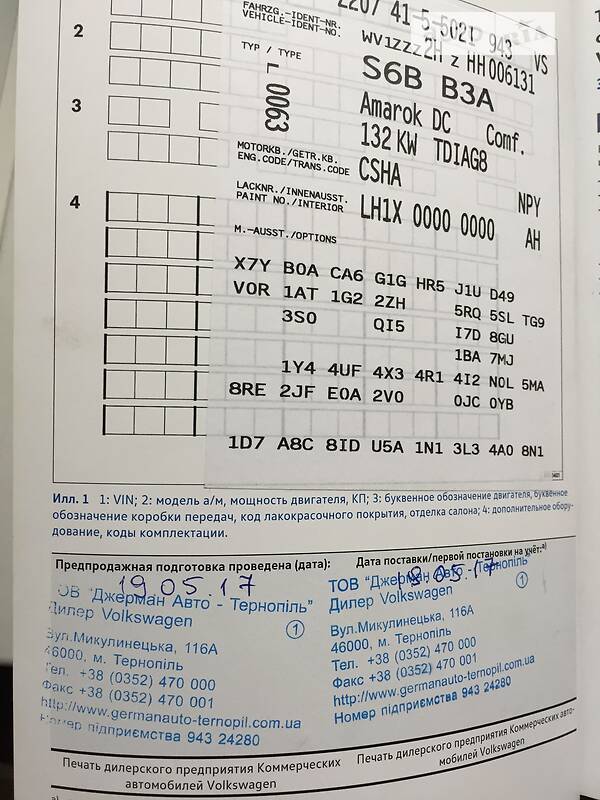 2207 41-5-5021 943 VS
FAHRZG.-IDENT-NR.
VEHICLE-IDENT-NO. WV1ZZZ2H z HH006131
2
TYP / TYPE S6B B3A
L 0063
Amarok DC Comf.
3
132 KW TDIAG8
MOTORKB./GETR.KB.
ENG.CODE/TRANS.CODE CSHA NPY
4
LACKNR./INNENAUSST.
PAINT NO./INTERIOR LH1X 0000 0000 AH
M.-AUSST./OPTIONS
X7Y B0A CA6 G1G HR5 J1U D49
V0R 1AT 1G2 2ZH 5RQ 5SL TG9
3S0 QI5 I7D 8GU
1BA 7MJ
1Y4 4UF 4X3 4R1 4I2 N0L 5MA
8RE 2JF E0A 2V0 0JC 0YB
1D7 A8C 8ID U5A 1N1 3L3 4A0 8N1
Илл. 1 1: VIN; 2: модель а/м, мощность двигателя, КП; 3: буквенное обозначение двигателя, буквенное
обозначение коробки передач, код лакокрасочного покрытия, отделка салона; 4: дополнительное обору-
дование, коды комплектации.
Предпродажная подготовка проведена (дата):
19.05.17
ТОВ "Джерман Авто - Тернопіль"
Дилер Volkswagen
1
Вул.Микулинецька, 116А
46000, м. Тернопіль
Тел. +38 (0352) 470 000
Факс +38 (0352) 470 001
http://www.germanauto-ternopil.com.ua
Номер підприємства 943 24280
Печать дилерского предприятия Коммерческих
автомобилей Volkswagen
Дата поставки/первой постановки на учёт:a)
05.17
ТОВ "Джерман Авто - Тернопіль"
Дилер Volkswagen
1
Вул.Микулинецька, 116А
46000, м. Тернопіль
Тел. +38 (0352) 470 000
Факс +38 (0352) 470 001
http://www.germanauto-ternopil.com.ua
Номер підприємства 943 24280
Печать дилерского предприятия Коммерческих авто-
мобилей Volkswagen
a)